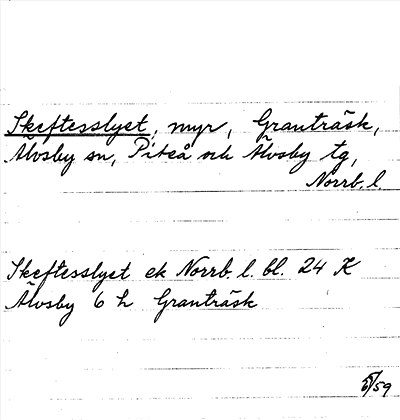 Skeftesslyet, myr, Granträsk,
Älvsby sn, Piteå och Älvsby tg,
Norrb. l.
Skeftesslyet ek Norrb. l. bl. 24 K
Älvsby 6 h Granträsk
5/59